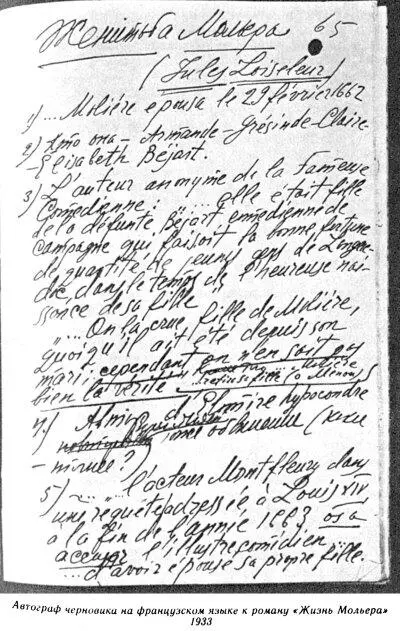 Женитьба Мольера 65
(Jules Loiseleur)
1) ... Molière épousa le 29 février 1662
2) Кто она – Armande-Grésinde-Claire-
Elisabeth Béjart.
3) L'auteur anonyme de la Fameuse
Comédienne: "... elle était fille
de la défunte Béjart, comédienne de
campagne qui faisoit la bonne fortune
de quantité de jeunes gens de Langue-
doc, dans le temps de l'heureuse nais-
ssance de sa fille
"... On la crue fille de Molière,
quoiqu'il ait été depuis son
mari, cependant on n'en sait pas
bien la vérité
4) d'Elomire hypocondre
5) "... l'acteur Montfleury dans
une requête adressée à Louis XIV
a la fin de l'année 1663 osa
accuser l'illustre comédien ...
... d'avoir épousé sa propre fille.
Автограф черновика на французском языке к роману «Жизнь Мольера»
1933